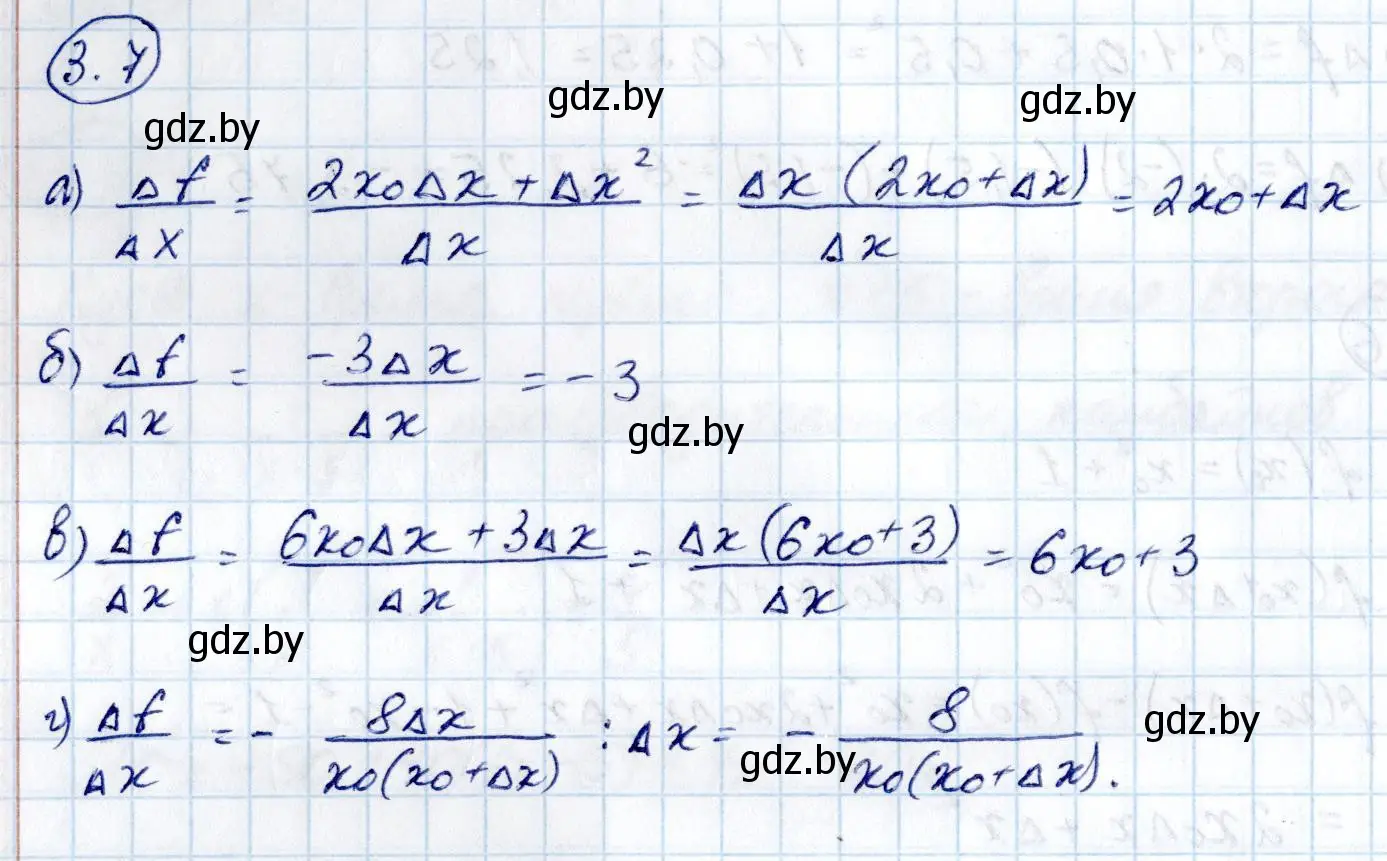 3.7
gdz.by gdz.by gdz.by
а) Δf/Δx = (2x₀Δx + Δx²)/Δx = Δx(2x₀ + Δx)/Δx = 2x₀ + Δx
б) Δf/Δx = -3Δx/Δx = -3
gdz.by
в) Δf/Δx = (6x₀Δx + 3Δx)/Δx = Δx(6x₀ + 3)/Δx = 6x₀ + 3
gdz.by
г) Δf/Δx = - 8Δx/(x₀(x₀ + Δx)) : Δx = - 8/(x₀(x₀ + Δx)).
gdz.by gdz.by